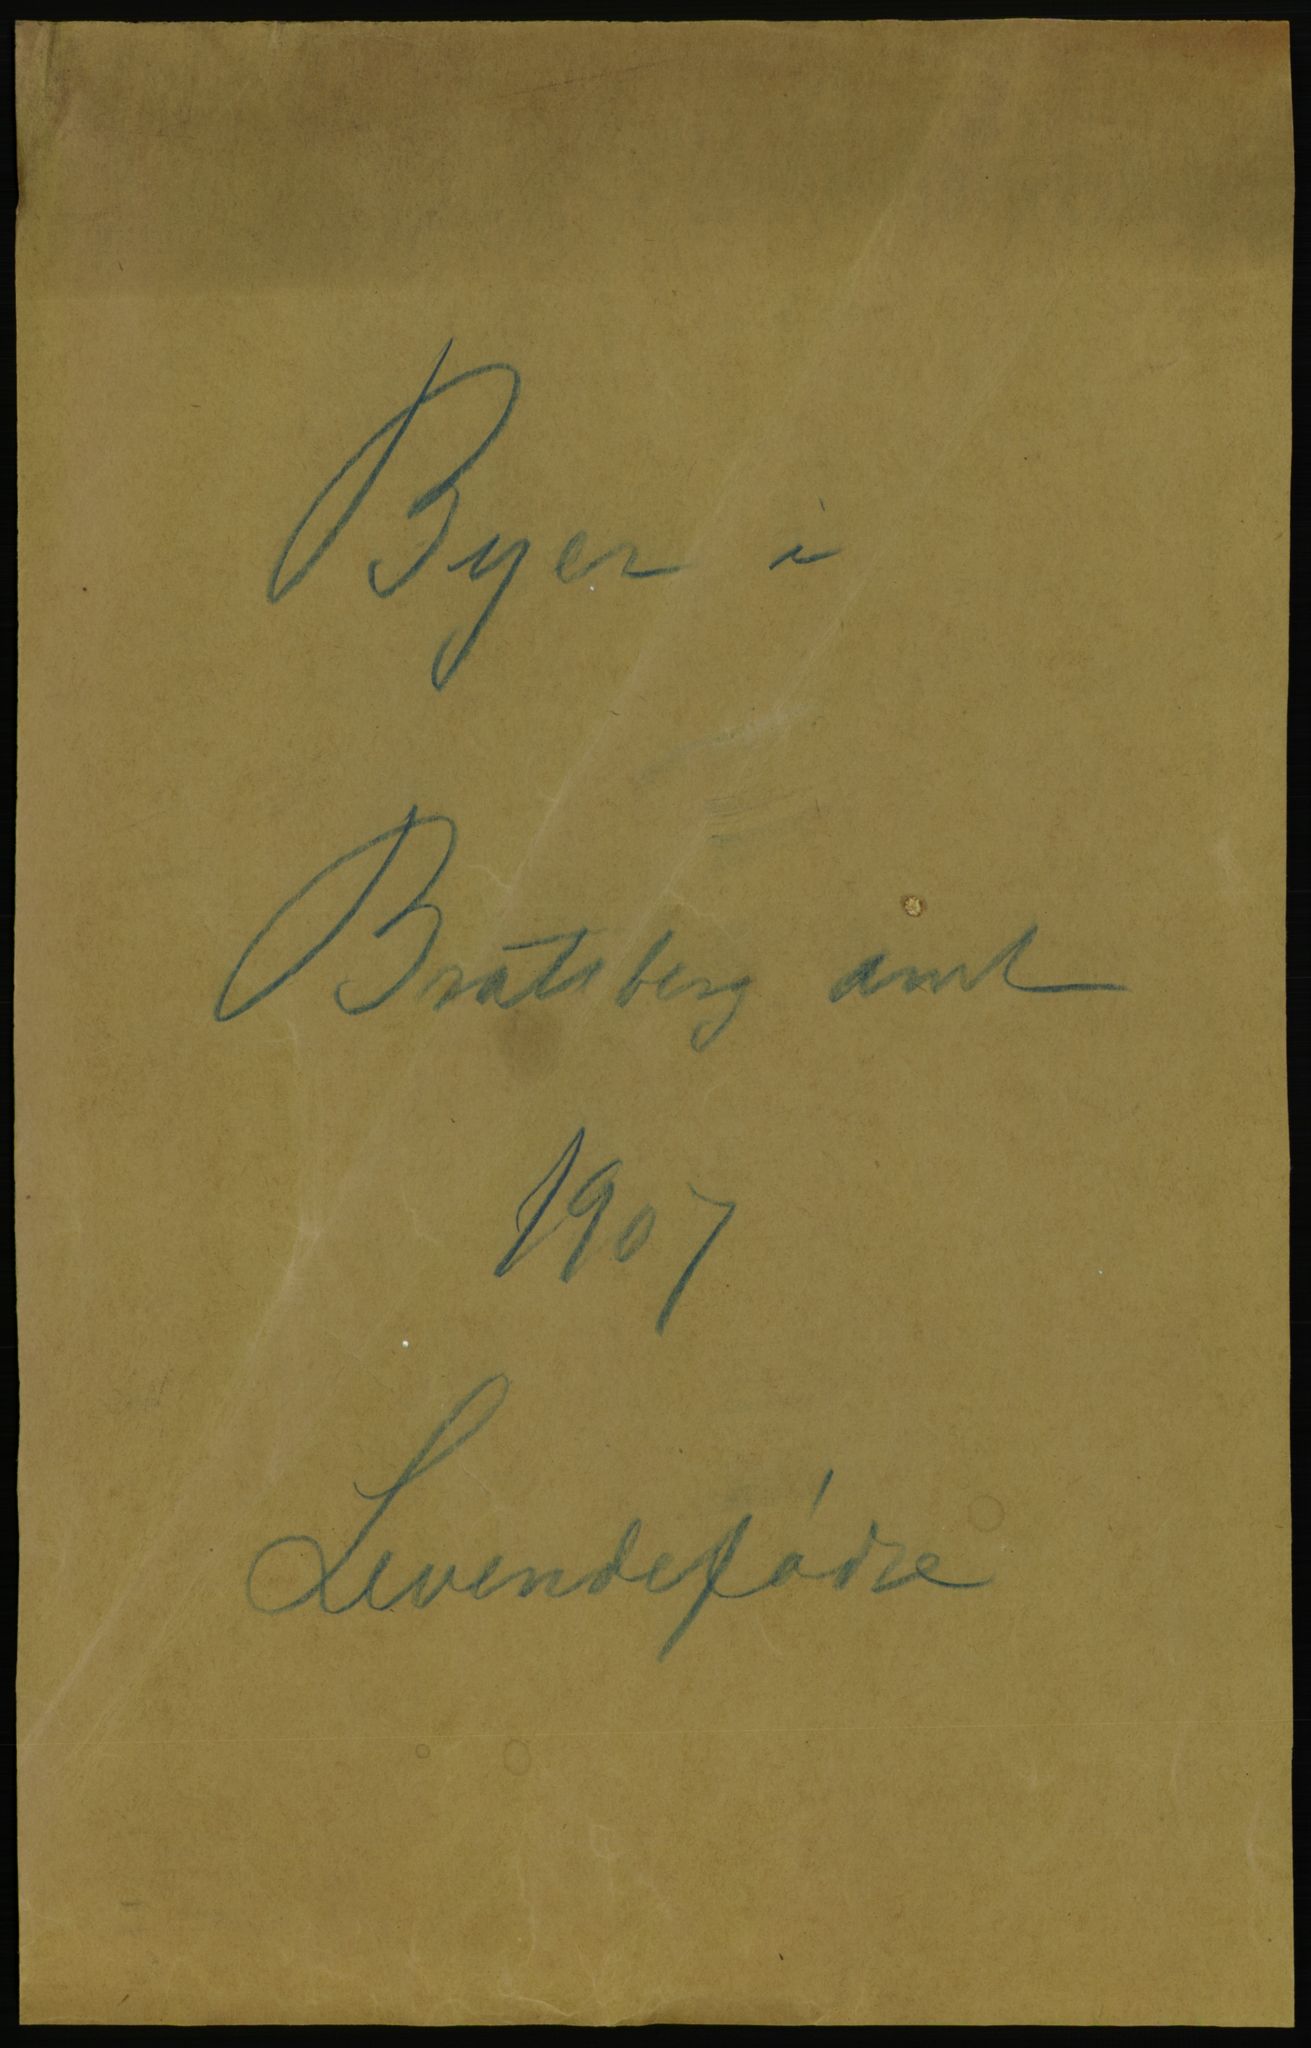 Byer i
Bratsberg amt
1907
Levendefødte